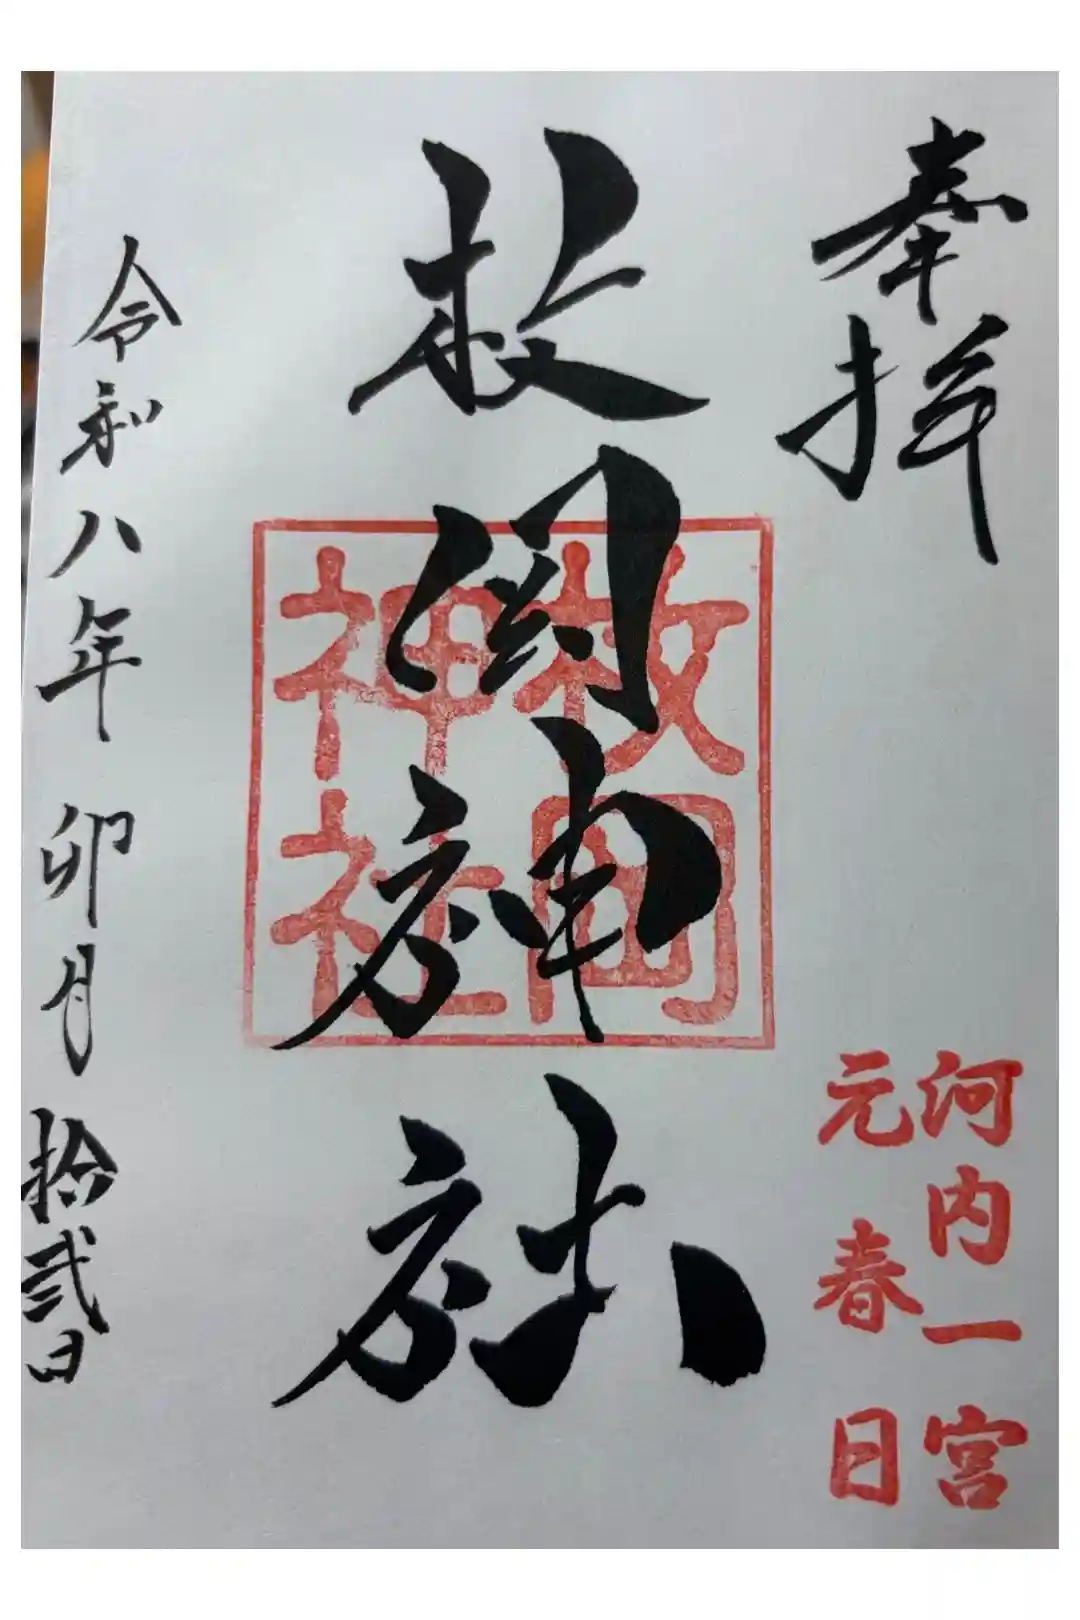 奉拝
河内一宮
元春日
枚岡神社
枚岡
神社
令和八年 卯月 拾弐日